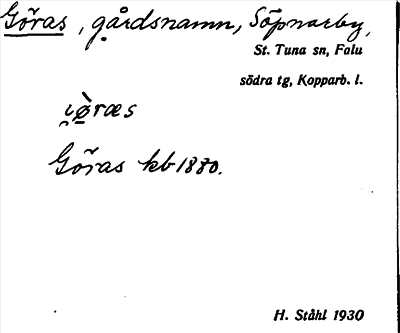 Göras, gårdsnamn, Söpnarby,
St. Tuna sn, Falu
södra tg, Kopparb. l.
Göras kb 1880.
H. Ståhl 1930